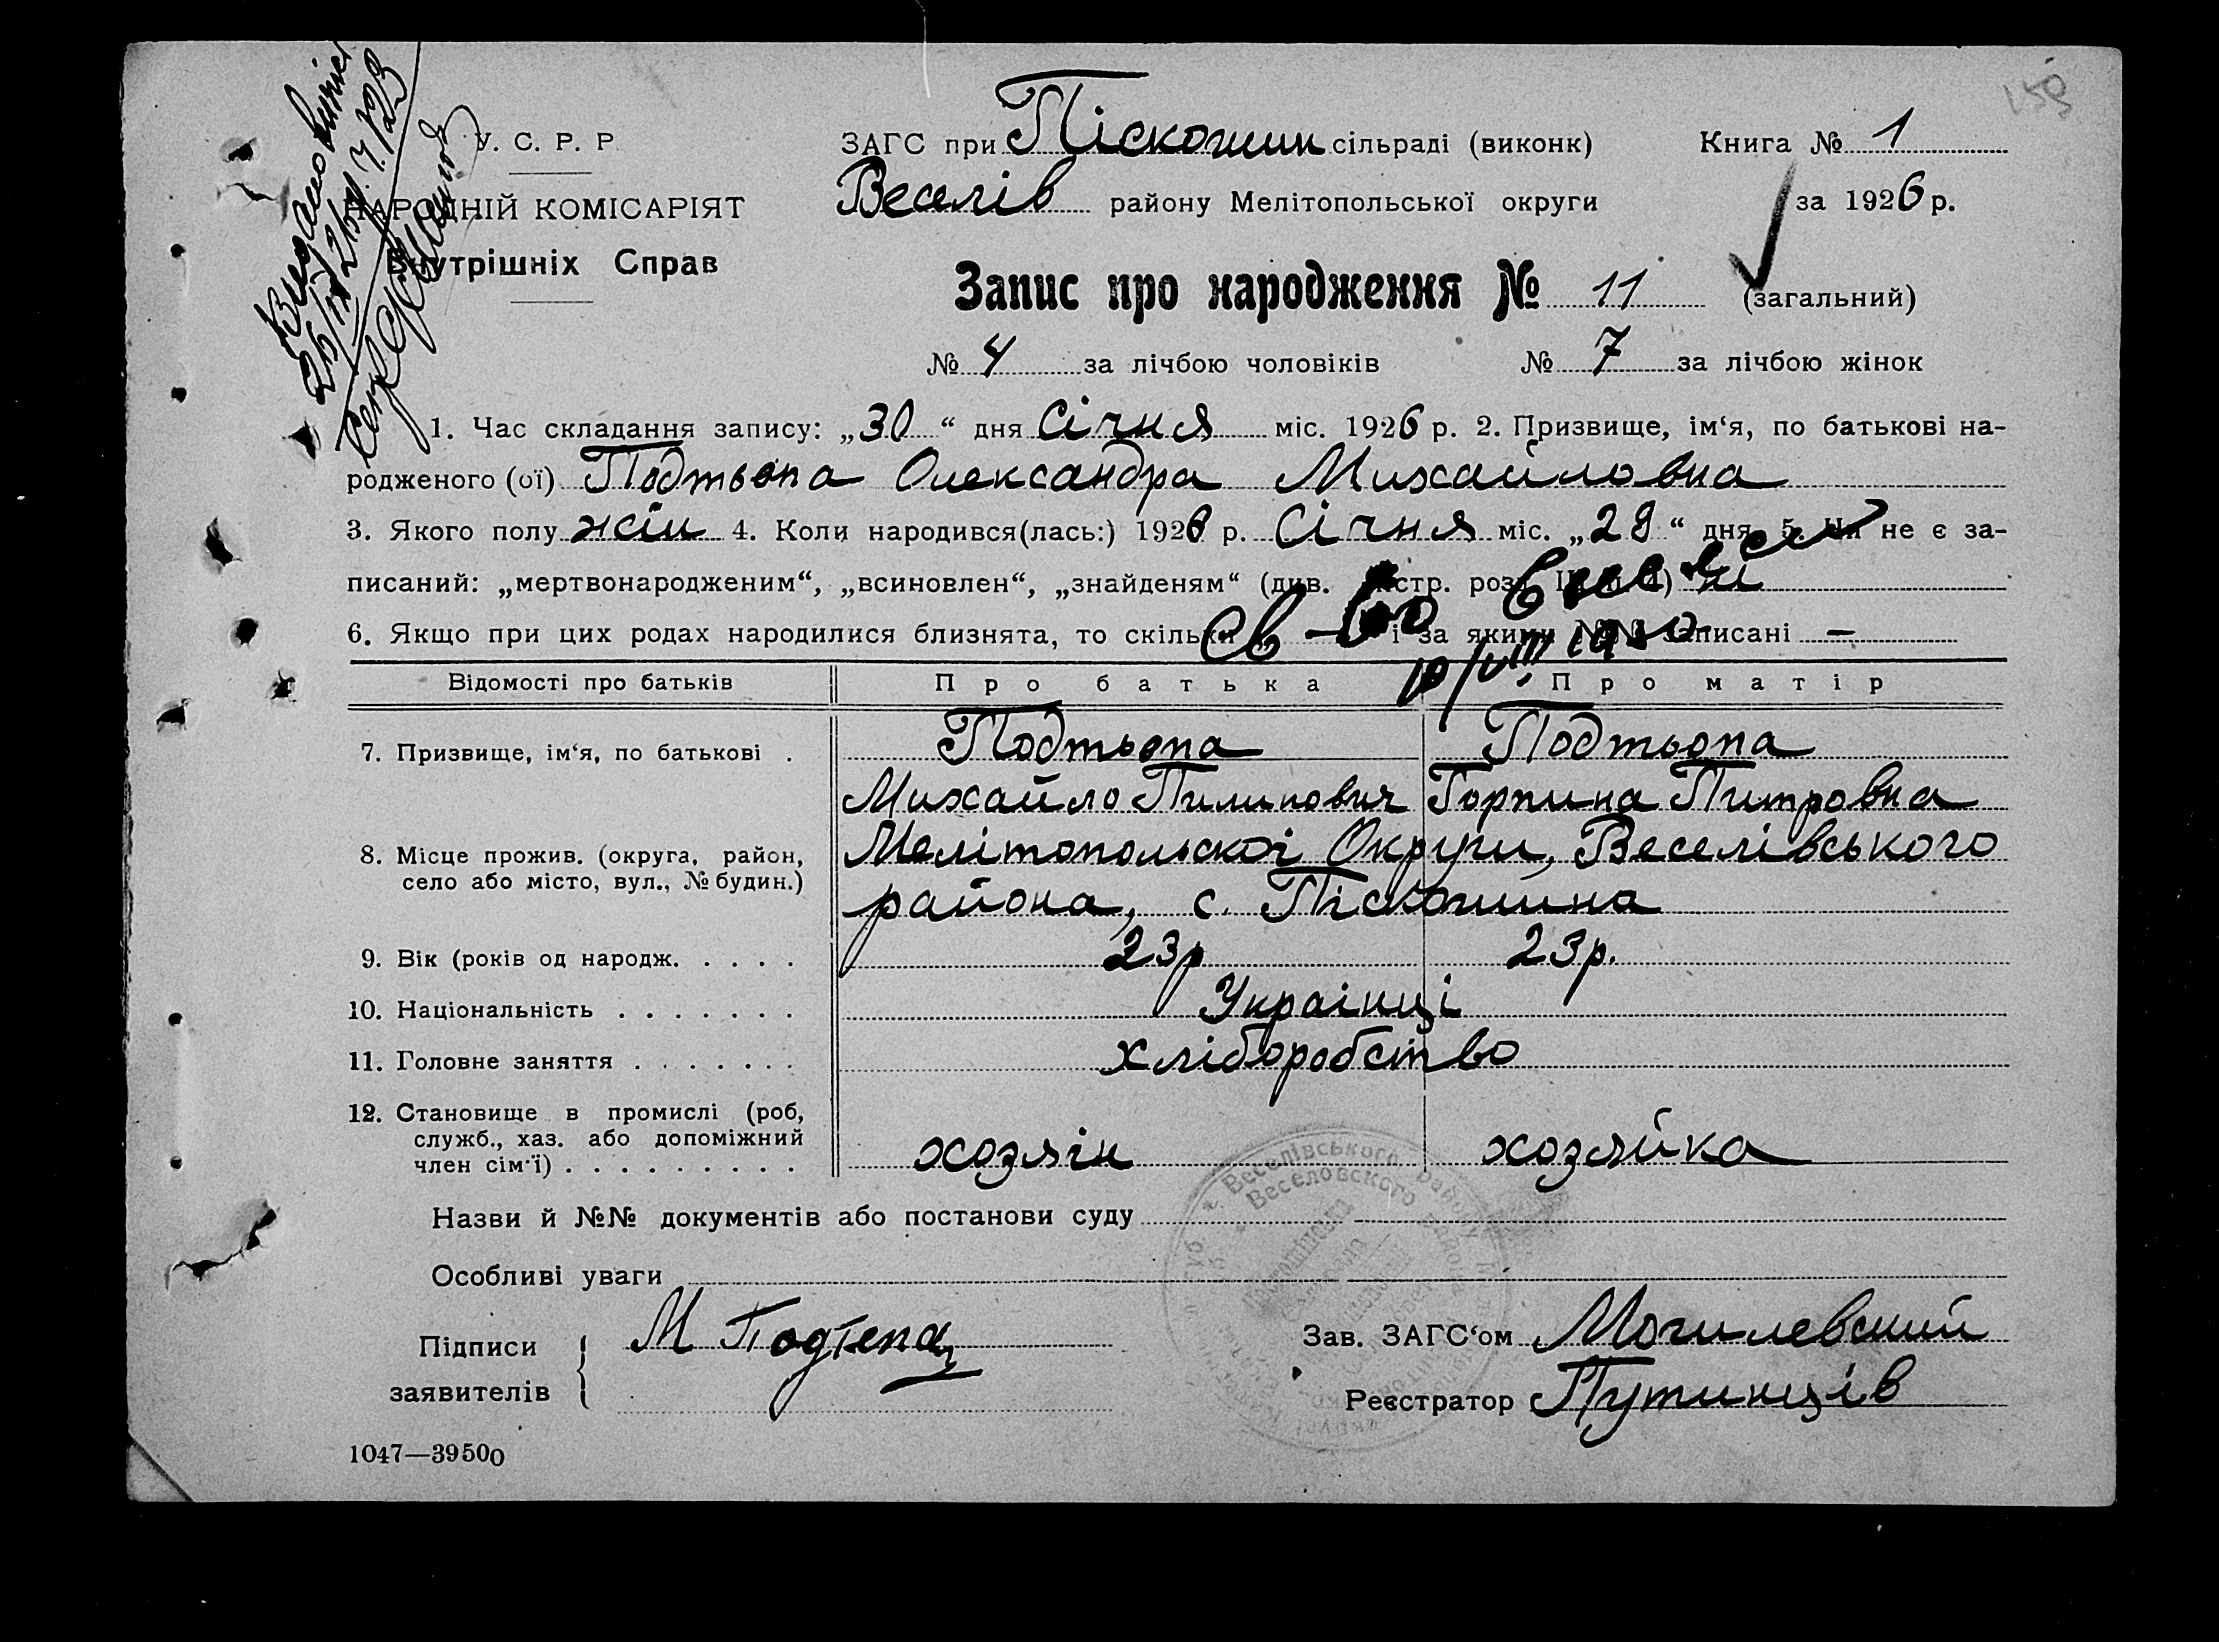 159
У. С. Р. Р
НАРОДНІЙ КОМІСАРІЯТ
Внутрішніх Справ
Видано
ЗАГС при Піскошин сільраді (виконк) Книга № 1
Веселів району Мелітопольської округи за 1926 р.
Запис про народження № 11 (загальний)
№ 4 за лічбою чоловіків № 7 за лічбою жінок
1. Час складання запису: „30“ дня Січня міс. 1926 р. 2. Призвище, ім‘я, по батькові на-
родженого (ої) Подтьопа Олександра Михайловна
3. Якого полу жін 4. Коли народився(лась:) 1926 р. Січня міс. „29“ дня 5. Чи не є за-
писаний: „мертвонародженим“, „всиновлен“, „знайденям“ (див. стр. розд. ні
6. Якщо при цих родах народилися близнята, то скільки і за якими №№ записані —
Св-во
10/VIII
Відомості про батьків Про батька Про матір
7. Призвище, ім‘я, по батькові . Подтьопа Подтьопа
Михайло Пилипович Горпина Питровна
8. Місце прожив. (округа, район, Мелітопольскої Округи, Веселівського
село або місто, вул., № будин.) района, с. Піскошина
9. Вік (років од народж. . . . . 23р 23р.
10. Національність . . . . . . . Украінці
11. Головне заняття . . . . . . . хліборобство
12. Становище в промислі (роб,
служб., хаз. або допоміжний
член сім‘ї) . . . . . . . . . хозяін хозяйка
Назви й №№ документів або постанови суду
Особливі уваги
Підписи М Подтепа Зав. ЗАГС‘ом Могилевский
заявителів Реєстратор Путинців
1047—39500